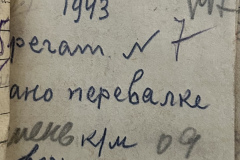 1943
регат N 7
ано перевалке
мень к/м 09